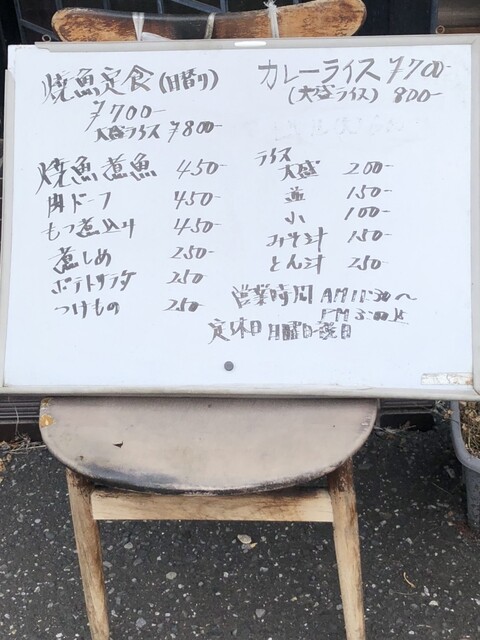 焼魚定食(日替り)
¥700-
大盛ライス ¥800-
カレーライス ¥700-
(大盛ライス) 800-
焼魚 煮魚 450-
肉ドーフ 450-
もつ煮込み 450-
煮しめ 250-
ポテトサラダ 250
つけもの 250-
ライス
大盛 200-
並 150-
小 100-
みそ汁 150-
とん汁 250-
営業時間 AM11:30〜
PM 3:00迄
定休日 月曜日・祝日